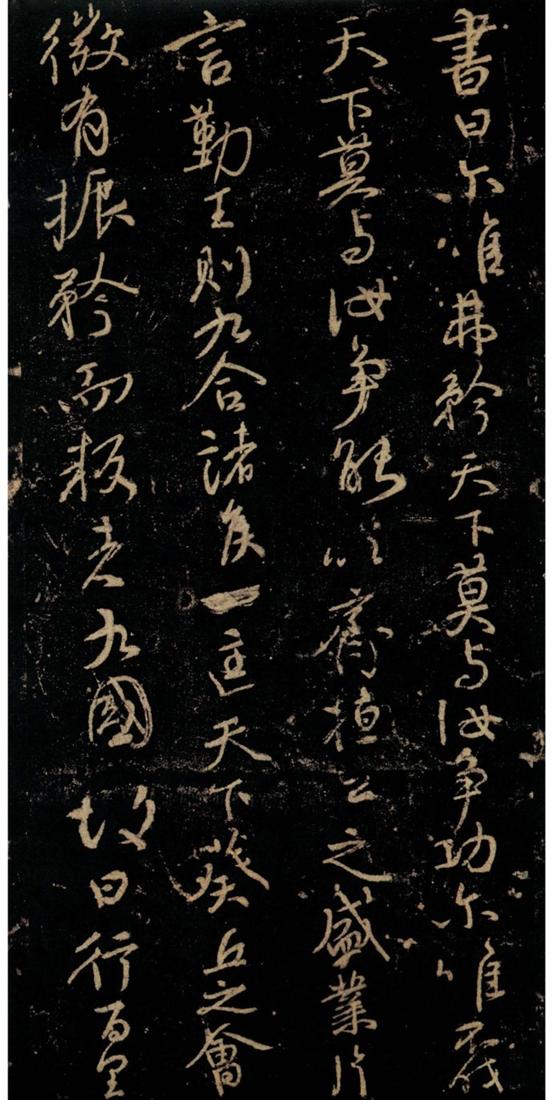 書曰尔唯弗矜天下莫与汝争功尔唯弗伐
天下莫与汝争能以齊桓公之盛業片
言勤王則九合諸侯一匡天下葵丘之會
微有振矜而叛者九國故曰行百里